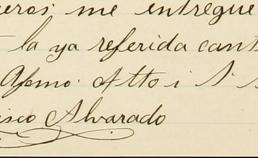 eros: me entregue
la ya referida cant
Afmo. Atto i S. S
isco Alvarado